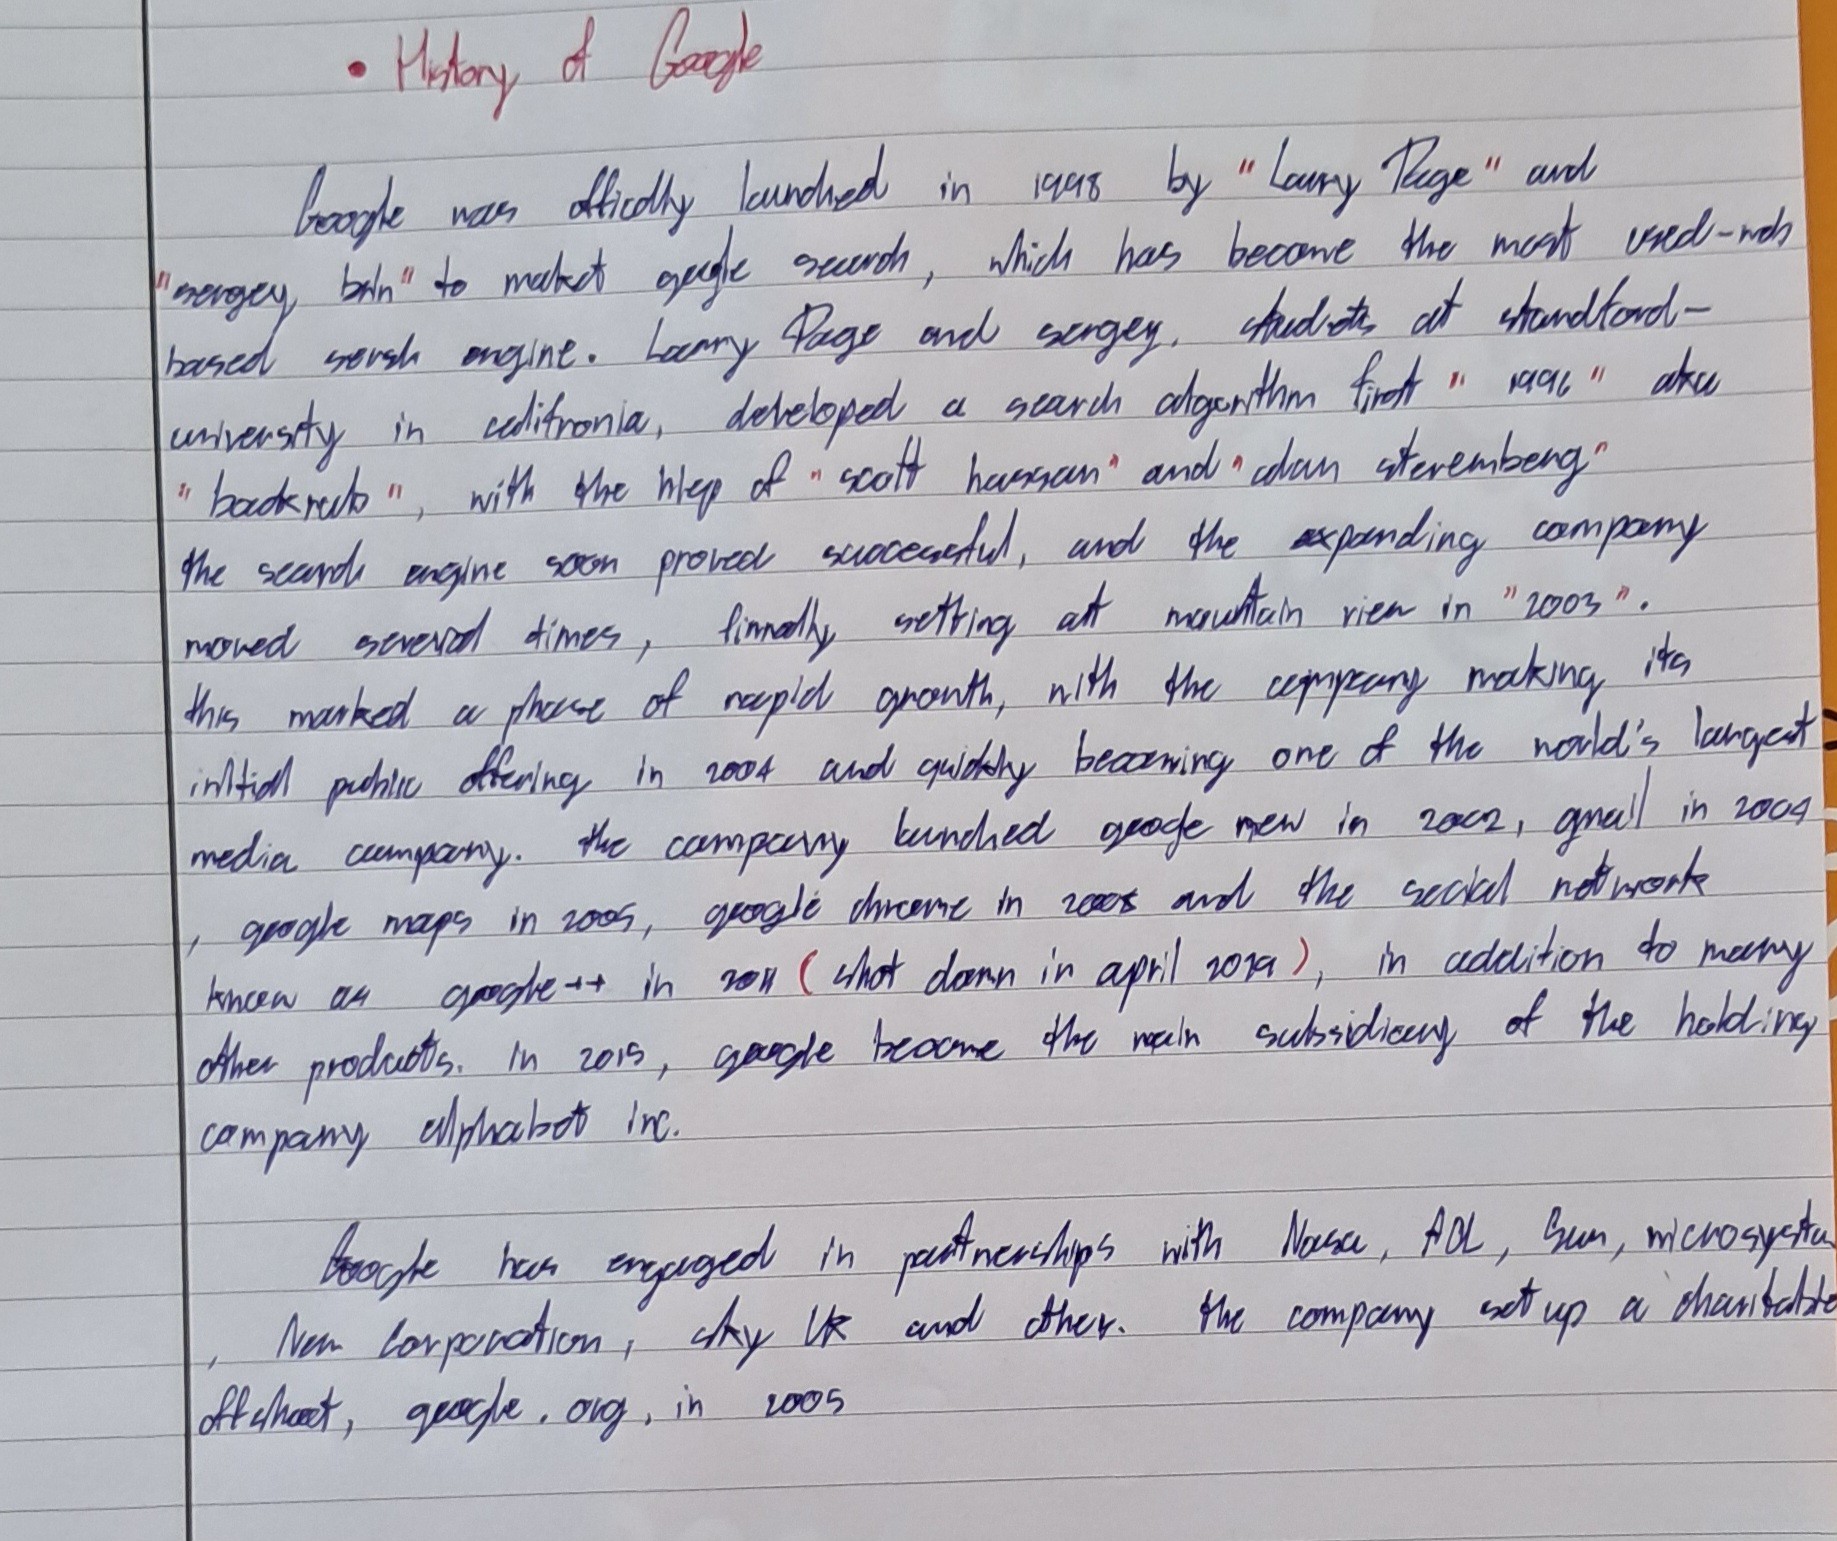 • History of Google
Google was offically launched in 1998 by "Larry Page" and
"sergey brin" to market google search, which has become the most used-web
based sersh engine. Larry Page and sergey, students at standford-
university in califronia, developed a search algorithm first " 1996 " aka
" backrub ", with the hlep of " scott hassan " and " alan steremberg "
the search engine soon proved successful, and the expanding company
moved several times, finnally setting at mountain view in "2003".
this marked a phase of rapid growth, with the company making its
initial public offering in 2004 and quickly becoming one of the world's largest
media company. the company launched google new in 2002, gmail in 2004
, google maps in 2005, google chrome in 2008 and the social network
known as google++ in 2011 (shot down in april 2019), in addition to many
other products. in 2015, google become the main subsidiary of the holding
company alphabet inc.
Google has engaged in partnerships with Nasa, AOL, Sun, microsystem
, New Corporation, sky UK and other. the company set up a charitable
offshoot, google.org, in 2005